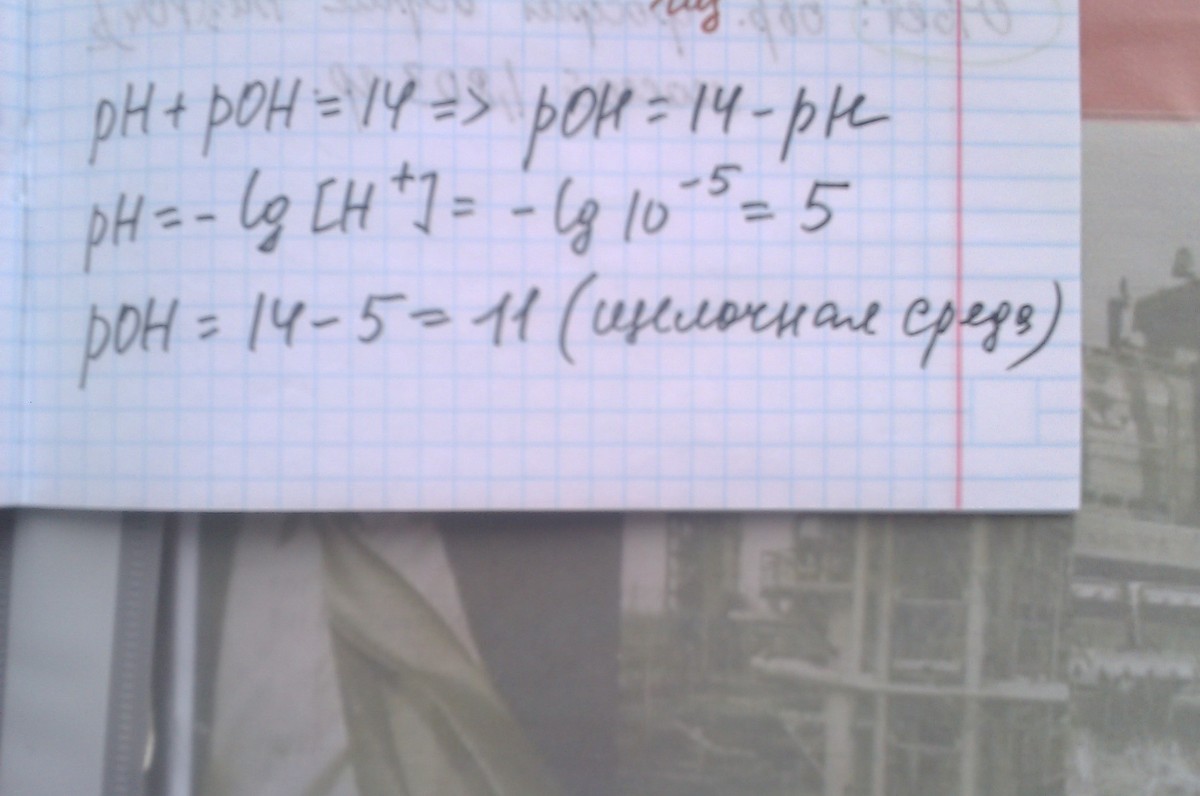 pH + pOH = 14 => pOH = 14 - pH
pH = - lg [H⁺] = - lg 10⁻⁵ = 5
pOH = 14 - 5 = 11 (щелочная среда)